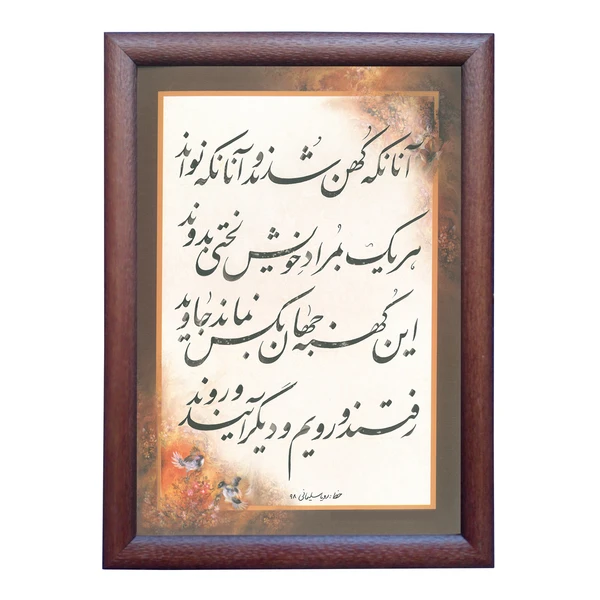 آنانکه کُهن شُدند و آنانکه نواند
هر یک بمُراد خویش لختی بدوند
این کُهنه جهان بکس نماند جاوید
رفتند و رویم و دیگر آیند و روند
خط: رویا سلیمانی ۹۸